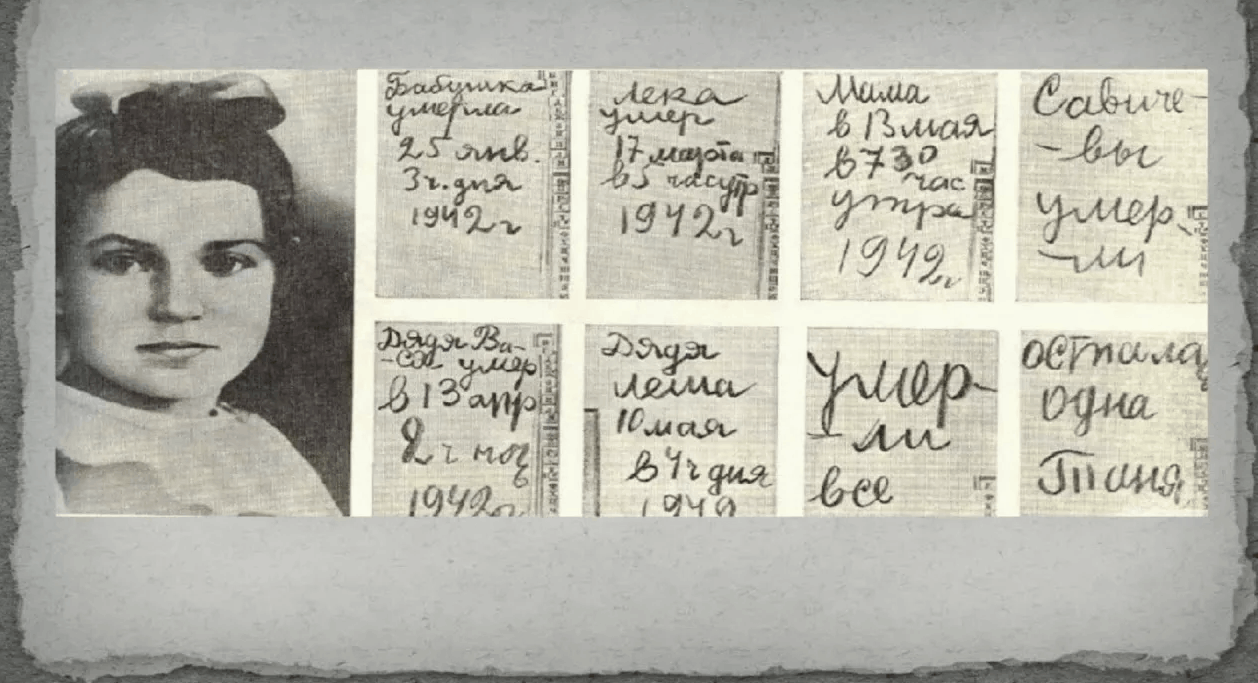 Бабушка
умерла
25 янв.
3ч. дня
1942г
Лека
умер
17 марта
в 5 часутр
1942г
Мама
в 13 мая
в 7 30
час
утра
1942г
Савиче-
-вы
умер-
-ли
Дядя Ва-
-ся умер
в 13 апр
2 ч ноч
1942г
Дядя
Леша
10 мая
в 4ч дня
1942
Умер-
-ли
все
осталась
одна
Таня